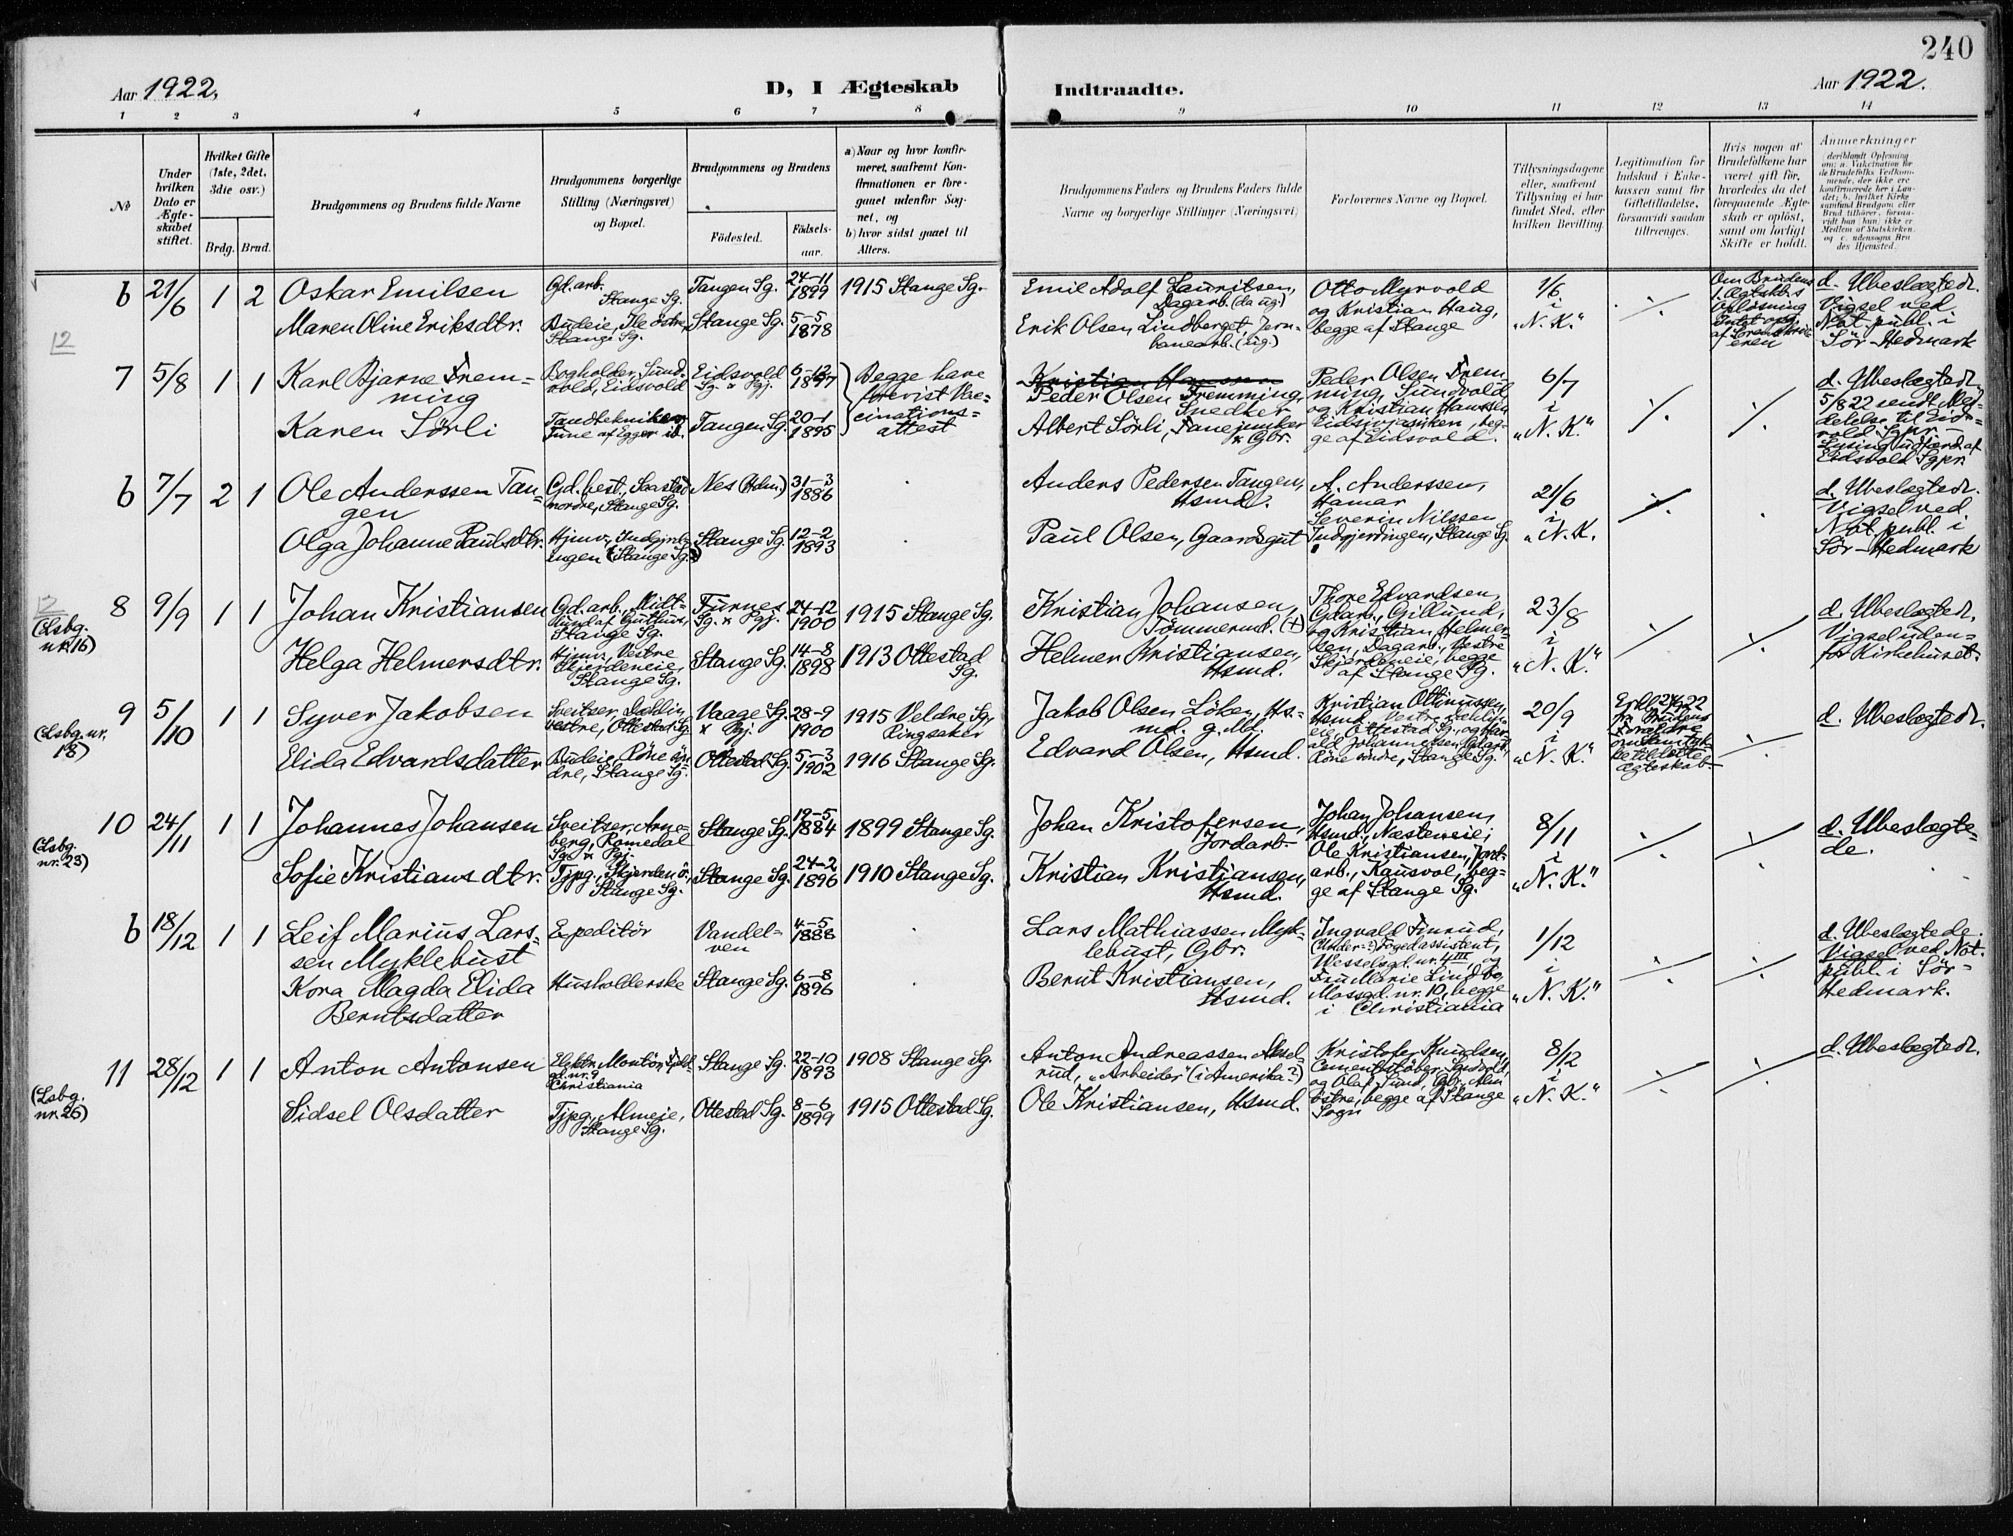 240
Aar 1922,
D, I Ægteskab
Indtraadte.
Aar 1922.
1 2 3 4 5 6 7 8 9 10 11 12 13 14
No
Under hvilken Dato er Ægteskabet stiftet.
Hvilket Gifte (1ste, 2det, 3die osv.)
Brdg. Brud.
Brudgommens og Brudens fulde Navne
Brudgommens borgerlige Stilling (Næringsvei) og Bopæl.
Brudgommens og Brudens
Födested.
Födselsaar.
a) Naar og hvor konfirmeret, saafremt Konfirmationen er foregaaet udenfor Sognet, og
b) hvor sidst gaaet til Alters.
Brudgommens Faders og Brudens Faders fulde Navne og borgerlige Stillinger (Næringsvei)
Forlovernes Navne og Bopæl.
Tillysningsdagene eller, saafremt Tillysning ei har fundet Sted, efter hvilken Bevilling.
Legitimation for Indskud i Enkekassen samt for Giftetilladelse, forsaavidt saadan tiltrænges.
Hvis nogen af Brudefolkene har været gift før, hvorledes da det foregaaende Ægteskab er opløst, samt om lovligt Skifte er holdt.
Anmerkninger
b 21/6 1 2 Oskar Emilsen
Gd. arb. Stange Sg.
Tangen Sg. 24-11 1899 1915 Stange Sg.
Emil Adolf Lauritsen, Dagarb. (da ug.)
Otto Myrvold og Kristian Haug, begge af Stange
1/6 i "N. K."
d. Ubeslægtede. Vigsel ved Not. publ. i Sör-Hedmark
Maren Oline Eriksdtr.
Budeie, Ile östre, Stange Sg.
Stange Sg. 5-5 1878
Erik Olsen Lindberget, Jernbanearb. (ug.)
12
7 5/8 1 1 Karl Bjarne Fremming
Bogholder, Sundvold, Eidsvold
Eidsvold Sg. & Pgj. 6-12 1897
Begge have forevist Vaccinationsattest
Kristian Hanssen
Peder Olsen Fremming, Snedker
Peder Olsen Fremming, Sundvold og Kristian Hanssen, begge af Eidsvold.
6/7 i "N. K."
d. Ubeslægtede. 5/8 22 sendt Meddelelse til Eidsvold Sgpr.
Karen Sörli
Tangen Sg. 20-1 1895
Albert Sörli, Fanejunker & Gbr.
b 7/7 2 1 Ole Anderssen Tangen
Gd. best., Saastad nordre, Stange Sg.
Nes (Hdm.) 31-3 1886
Anders Pedersen Tangen, Hsmd.
A. Anderssen, Hamar
Severin Nilssen Indgjerdingen, Stange Sg.
21/6 i "N. K.
d. Ubeslægtede. Vigsel ved Not. publ. i Sör-Hedmark
Olga Johanne Paulsdtr.
Hjmv., Indgjerdingen (Stange Sg.)
Stange Sg. 12-2 1893
Paul Olsen, Gaardsgut
12
8 9/9 1 1 Johan Kristiansen
(Lsbg. nr. 16)
Furnes Sg. & Pgj. 24-12 1900 1915 Stange Sg.
Kristian Johansen, Tömmermd. (+)
Thore Edvardsen, Gdarb., Gillund, og Kristian Helmersen, Dagarb., Vestre Skjerdeneie, begge af Stange Sg.
23/8 i "N. K."
d. Ubeslægtede. Vigsel udenfor Kirkehuset.
Helga Helmersdtr.
Hjmv., Vestre Skjerdeneie, Stange Sg.
Stange Sg. 14-8 1898 1913 Ottestad Sg.
Helmer Kristiansen, Hsmd.
9 5/10 1 1 Syver Jakobsen
(Lsbg. nr. 18)
Sveitser, Dæhlin vestre, Ottestad Sg.
Vaage Sg. & Pgj. 28-9 1900 1915 Veldre Sg. Ringsaker
Jakob Olsen Löken, Hsmd. g. M.
20/9 i "N. K."
d. Ubeslægtede.
Elida Edvardsdatter
Budeie, Röne söndre, Stange Sg.
Ottestad Sg. 5-3 1902 1916 Stange Sg.
Edvard Olsen, Hsmd.
10 24/11 1 1 Johannes Johansen
(Lsbg. nr. 23)
Sveitser, Arneberg, Romedal Sg. & Pgj.
Stange Sg. 19-5 1884 1899 Stange Sg.
Johan Kristofersen, Jordarb.
Johan Johansen, Hsmd., Næsteneie, Ole Kristiansen, Jordarb., Kausvol, begge af Stange Sg.
8/11 i "N. K."
d. Ubeslægtede.
Sofie Kristiansdtr.
Tjpg., Skjerden ö., Stange Sg.
Stange Sg. 24-2 1896 1910 Stange Sg.
Kristian Kristiansen, Hsmd.
b 18/12 1 1 Leif Marius Larssen Myklebust
Expeditör
Vandelven 4-5 1888
Lars Mathiassen Myklebust, Gbr.
Ingvald Finrud, (Under-?) Fogedassistent, Wesselsgd. nr. 4 III, og Fru Marie Lindbo, Mossgd. nr. 10, begge i Christiania
1/12 i "N. K."
d. Ubeslægtede. Vigsel ved Not. publ. i Sör-Hedmark.
Kora Magda Elida Berntsdatter
Husholderske
Stange Sg. 6-8 1896
Bernt Kristiansen, Hsmd.
11 28/12 1 1 Anton Antonsen
(Lsbg. nr. 26)
Elektr. Montör, nr. 9 Christiania
Stange Sg. 22-10 1893 1908 Stange Sg.
Anton Andreassen Akselrud, "Arbeider" (i Amerika?)
Kristofer Knudsen, Cementstøber, og Olaf Sund, Gbr., Alm östre, begge af Stange Sogn
8/12 i "N. K."
d. Ubeslægtede.
Sidsel Olsdatter
Tjpg., Almeie, Stange Sg.
Ottestad Sg. 8-6 1899 1915 Ottestad Sg.
Ole Kristiansen, Hsmd.